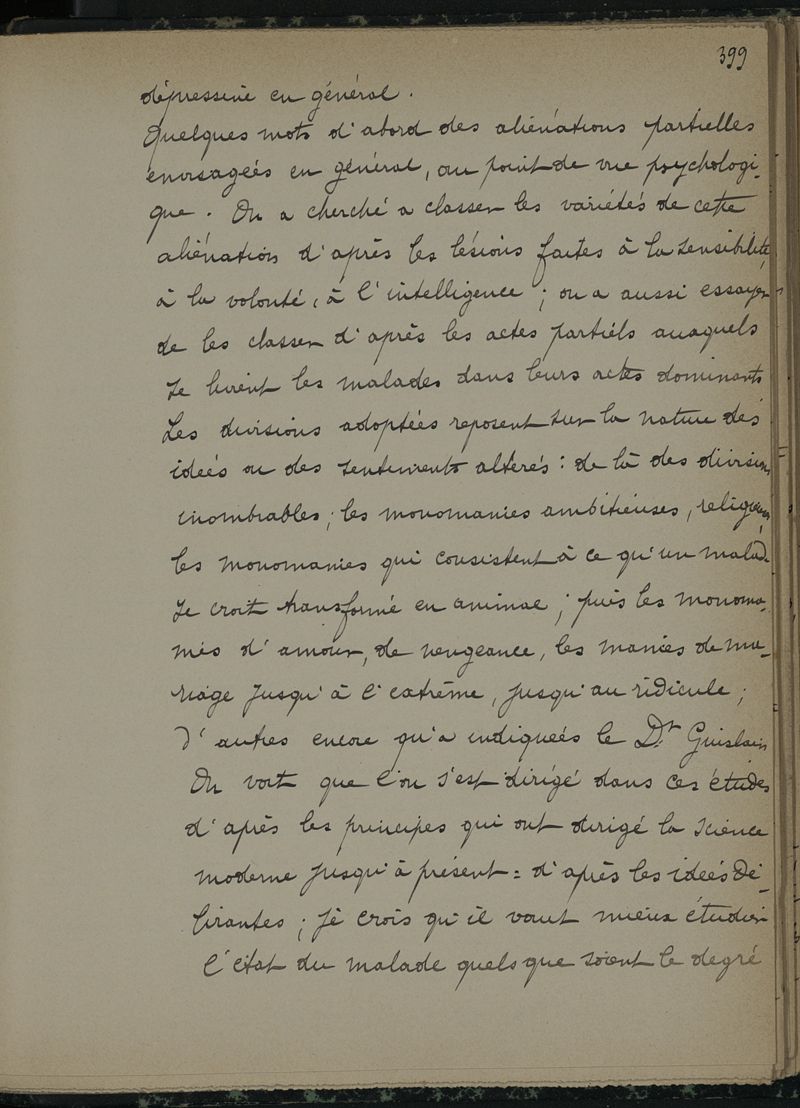 399
dépressive en général.
Quelques mots d'abord des aliénations partielles
envisageés en général, au point de vue psychologi-
que. On a cherché a classer les variétés de cette
aliénation d'après les lésions faites à la sensibilité,
à la volonté, à l'intelligence ; on a aussi essayer
de les classer d'après les actes partiels auxquels
se livrent les malades dans leurs actes dominants
Les divisions adoptées reposent sur la nature des
ideés ou des sentiments altérés : de là des divisions
inombrables ; les monomanies ambitieuses, religieuses,
les monomanies qui consistent à ce qu'un malade
se croit transformé en animal ; puis les monoma-
nies d'amour, de vengeance, les manies de ma-
riage jusqu'à l'extrême, jusqu'au ridicule ;
d'autres encore qu'a indiqueés le Dr Guislain
On voit que l'on s'est dirigé dans ces études
d'après les principes qui ont dirigé la science
moderne jusqu'à présent = d'après les ideés dé-
lirantes ; je crois qu'il vaut mieux étudier
l'état du malade quels que soient le degré